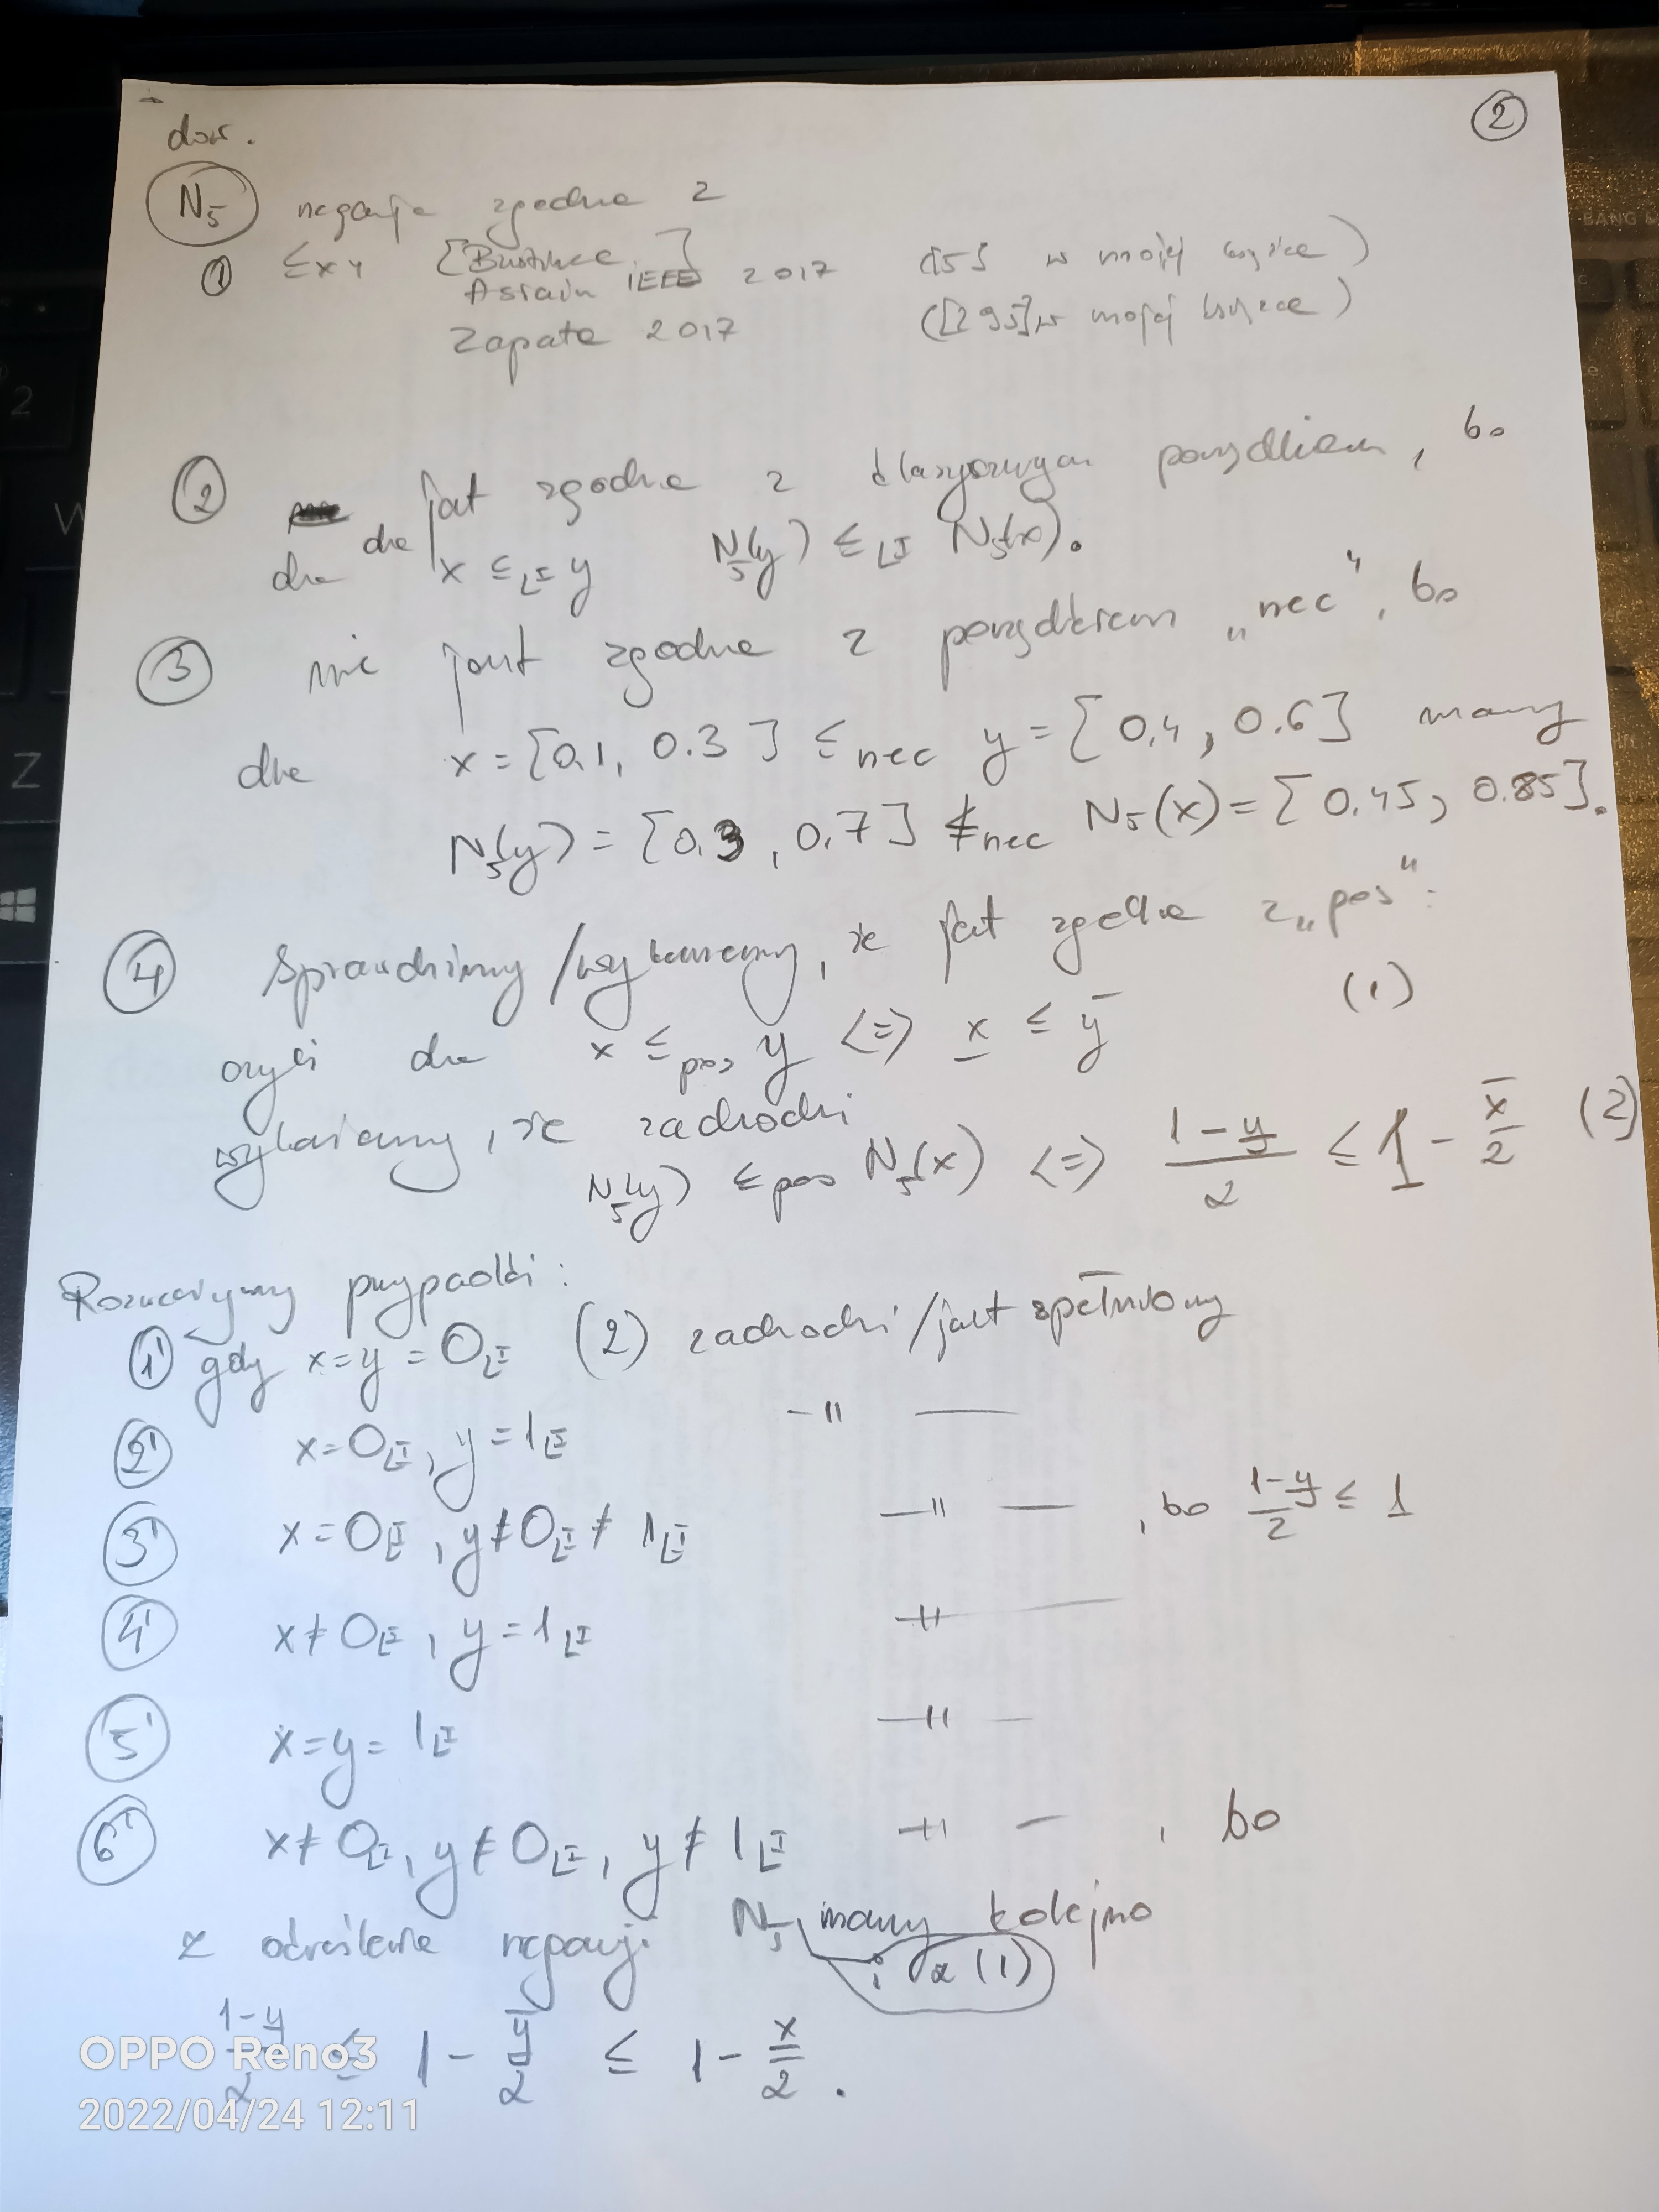 ②
dow.
N₅ negacja zgodna z
① ≤xy [Bustince, Asiain IEEE 2017] ([5] w mojej książce)
Zapata 2017 ([295] w mojej książce)
② jest zgodna z klasycznym porządkiem, bo
dla dla x ≤_{L^I} y N₅(y) ≤_{L^I} N₅(x).
③ nie jest zgodna z porządkiem „nec”, bo
dla x = [0.1, 0.3] ≤nec y = [0.4, 0.6] mamy
N₅(y) = [0.3, 0.7] ≰nec N₅(x) = [0.45, 0.85].
④ Sprawdzimy/wykażemy, że jest zgodna z „pos”:
czyli dla x ≤pos y <=> x̲ ≤ ȳ (1)
wykażemy, że zachodzi
N₅(y) ≤pos N₅(x) <=> (1-y̲)/2 ≤ 1 - x̄/2 (2)
Rozważymy przypadki:
①' gdy x=y=0_{L^I} (2) zachodzi/jest spełniony
②' x=0_{L^I}, y=1_{L^I} -||-
③' x=0_{L^I}, y≠0_{L^I}≠1_{L^I} -||- , bo (1-y̲)/2 ≤ 1
④' x≠0_{L^I}, y=1_{L^I} -||-
⑤' x=y=1_{L^I} -||-
⑥' x≠0_{L^I}, y≠0_{L^I}, y≠1_{L^I} -||- , bo
z określenia negacji N₅ mamy kolejno
i z (1)
(1-y)/2 ≤ 1 - y/2 ≤ 1 - x/2.
OPPO Reno3
2022/04/24 12:11